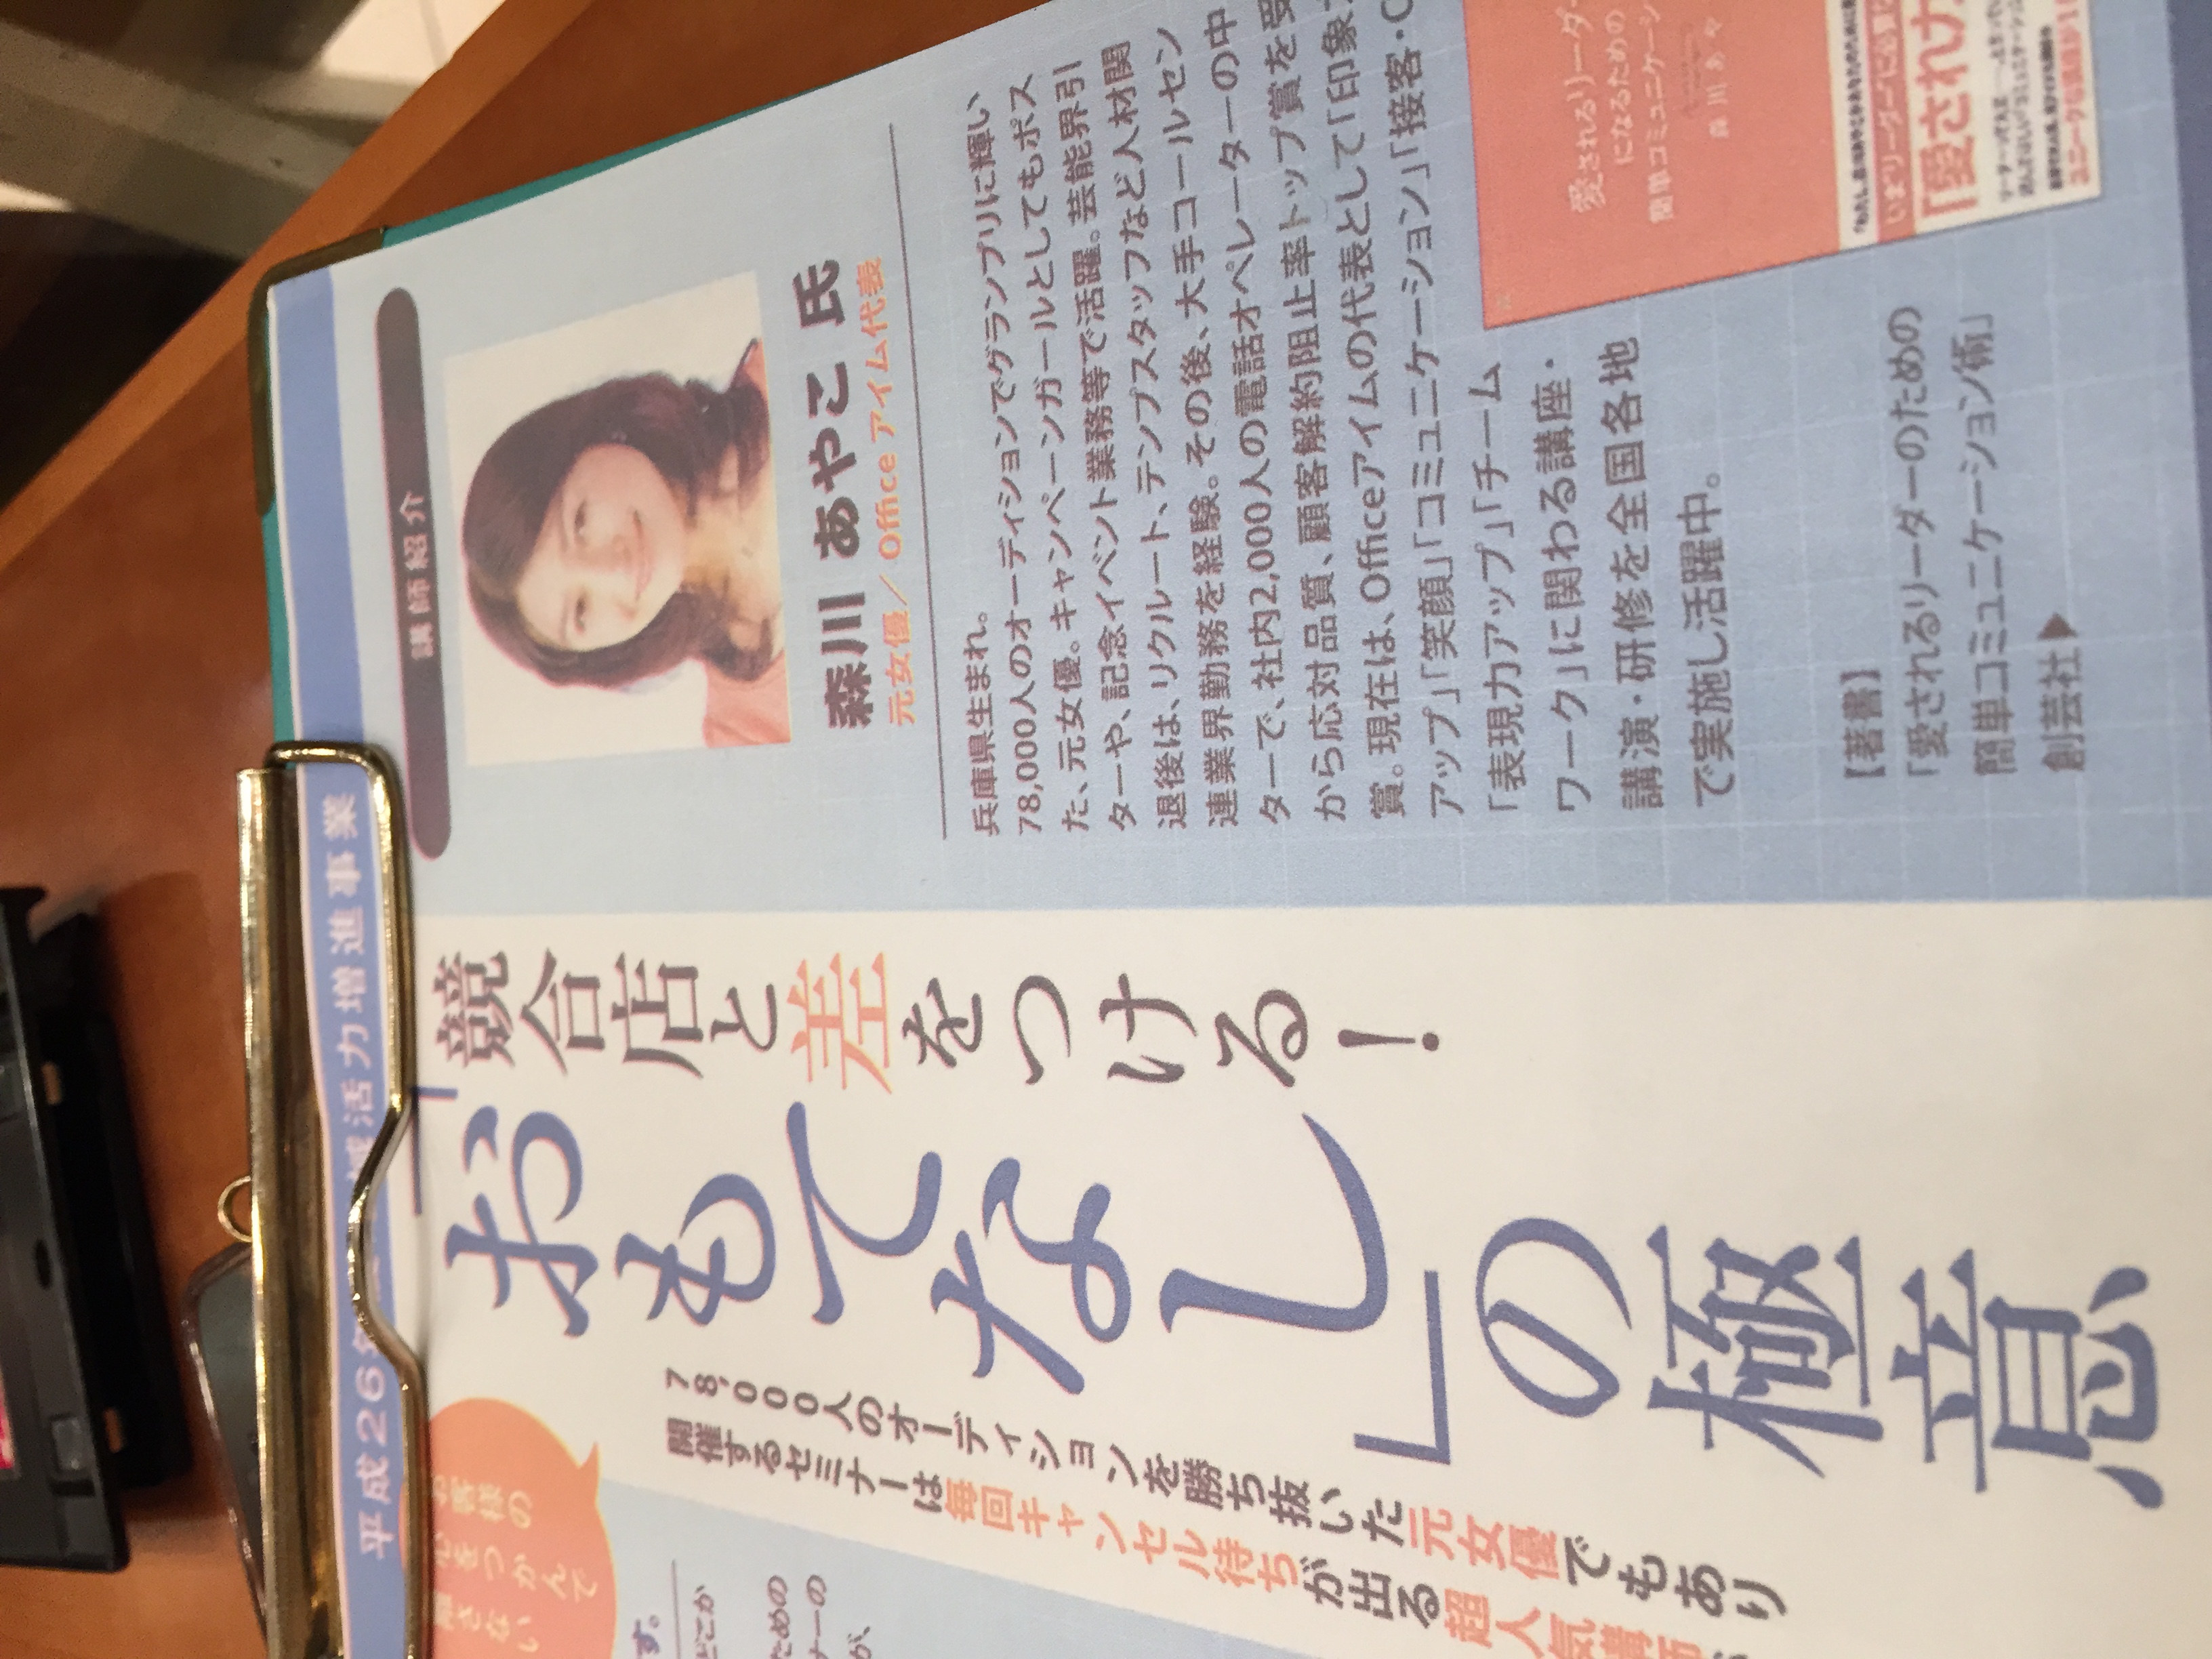 平成26年
域活力増進事業
競合店と差をつける！
「おもてなし」の極意
78,000人のオーディションを勝ち抜いた元女優でもあり
開催するセミナーは毎回キャンセル待ちが出る超人気講師
お客様の
心をつかんで
離さない
す。
どこか
ための
ナーの
が、
講師紹介
森川 あやこ 氏
元女優／Office アイム代表
兵庫県生まれ。
78,000人のオーディションでグランプリに輝い
た、元女優。キャンペーンガールとしてもポス
ターや、記念イベント業務等で活躍。芸能界引
退後は、リクルート、テンプスタッフなど人材関
連業界勤務を経験。その後、大手コールセン
ターで、社内2,000人の電話オペレーターの中
から応対品質、顧客解約阻止率トップ賞を受
賞。現在は、Officeアイムの代表として「印象
アップ」「笑顔」「コミュニケーション」「接客・C
「表現力アップ」「チーム
ワーク」に関わる講座・
講演・研修を全国各地
で実施し活躍中。
【著書】
「愛されるリーダーのための
簡単コミュニケーション術」
創芸社▶
愛されるリーダー
になるための
簡単コミュニケーシ
森川あや
いまリーダーに必要
「愛され力